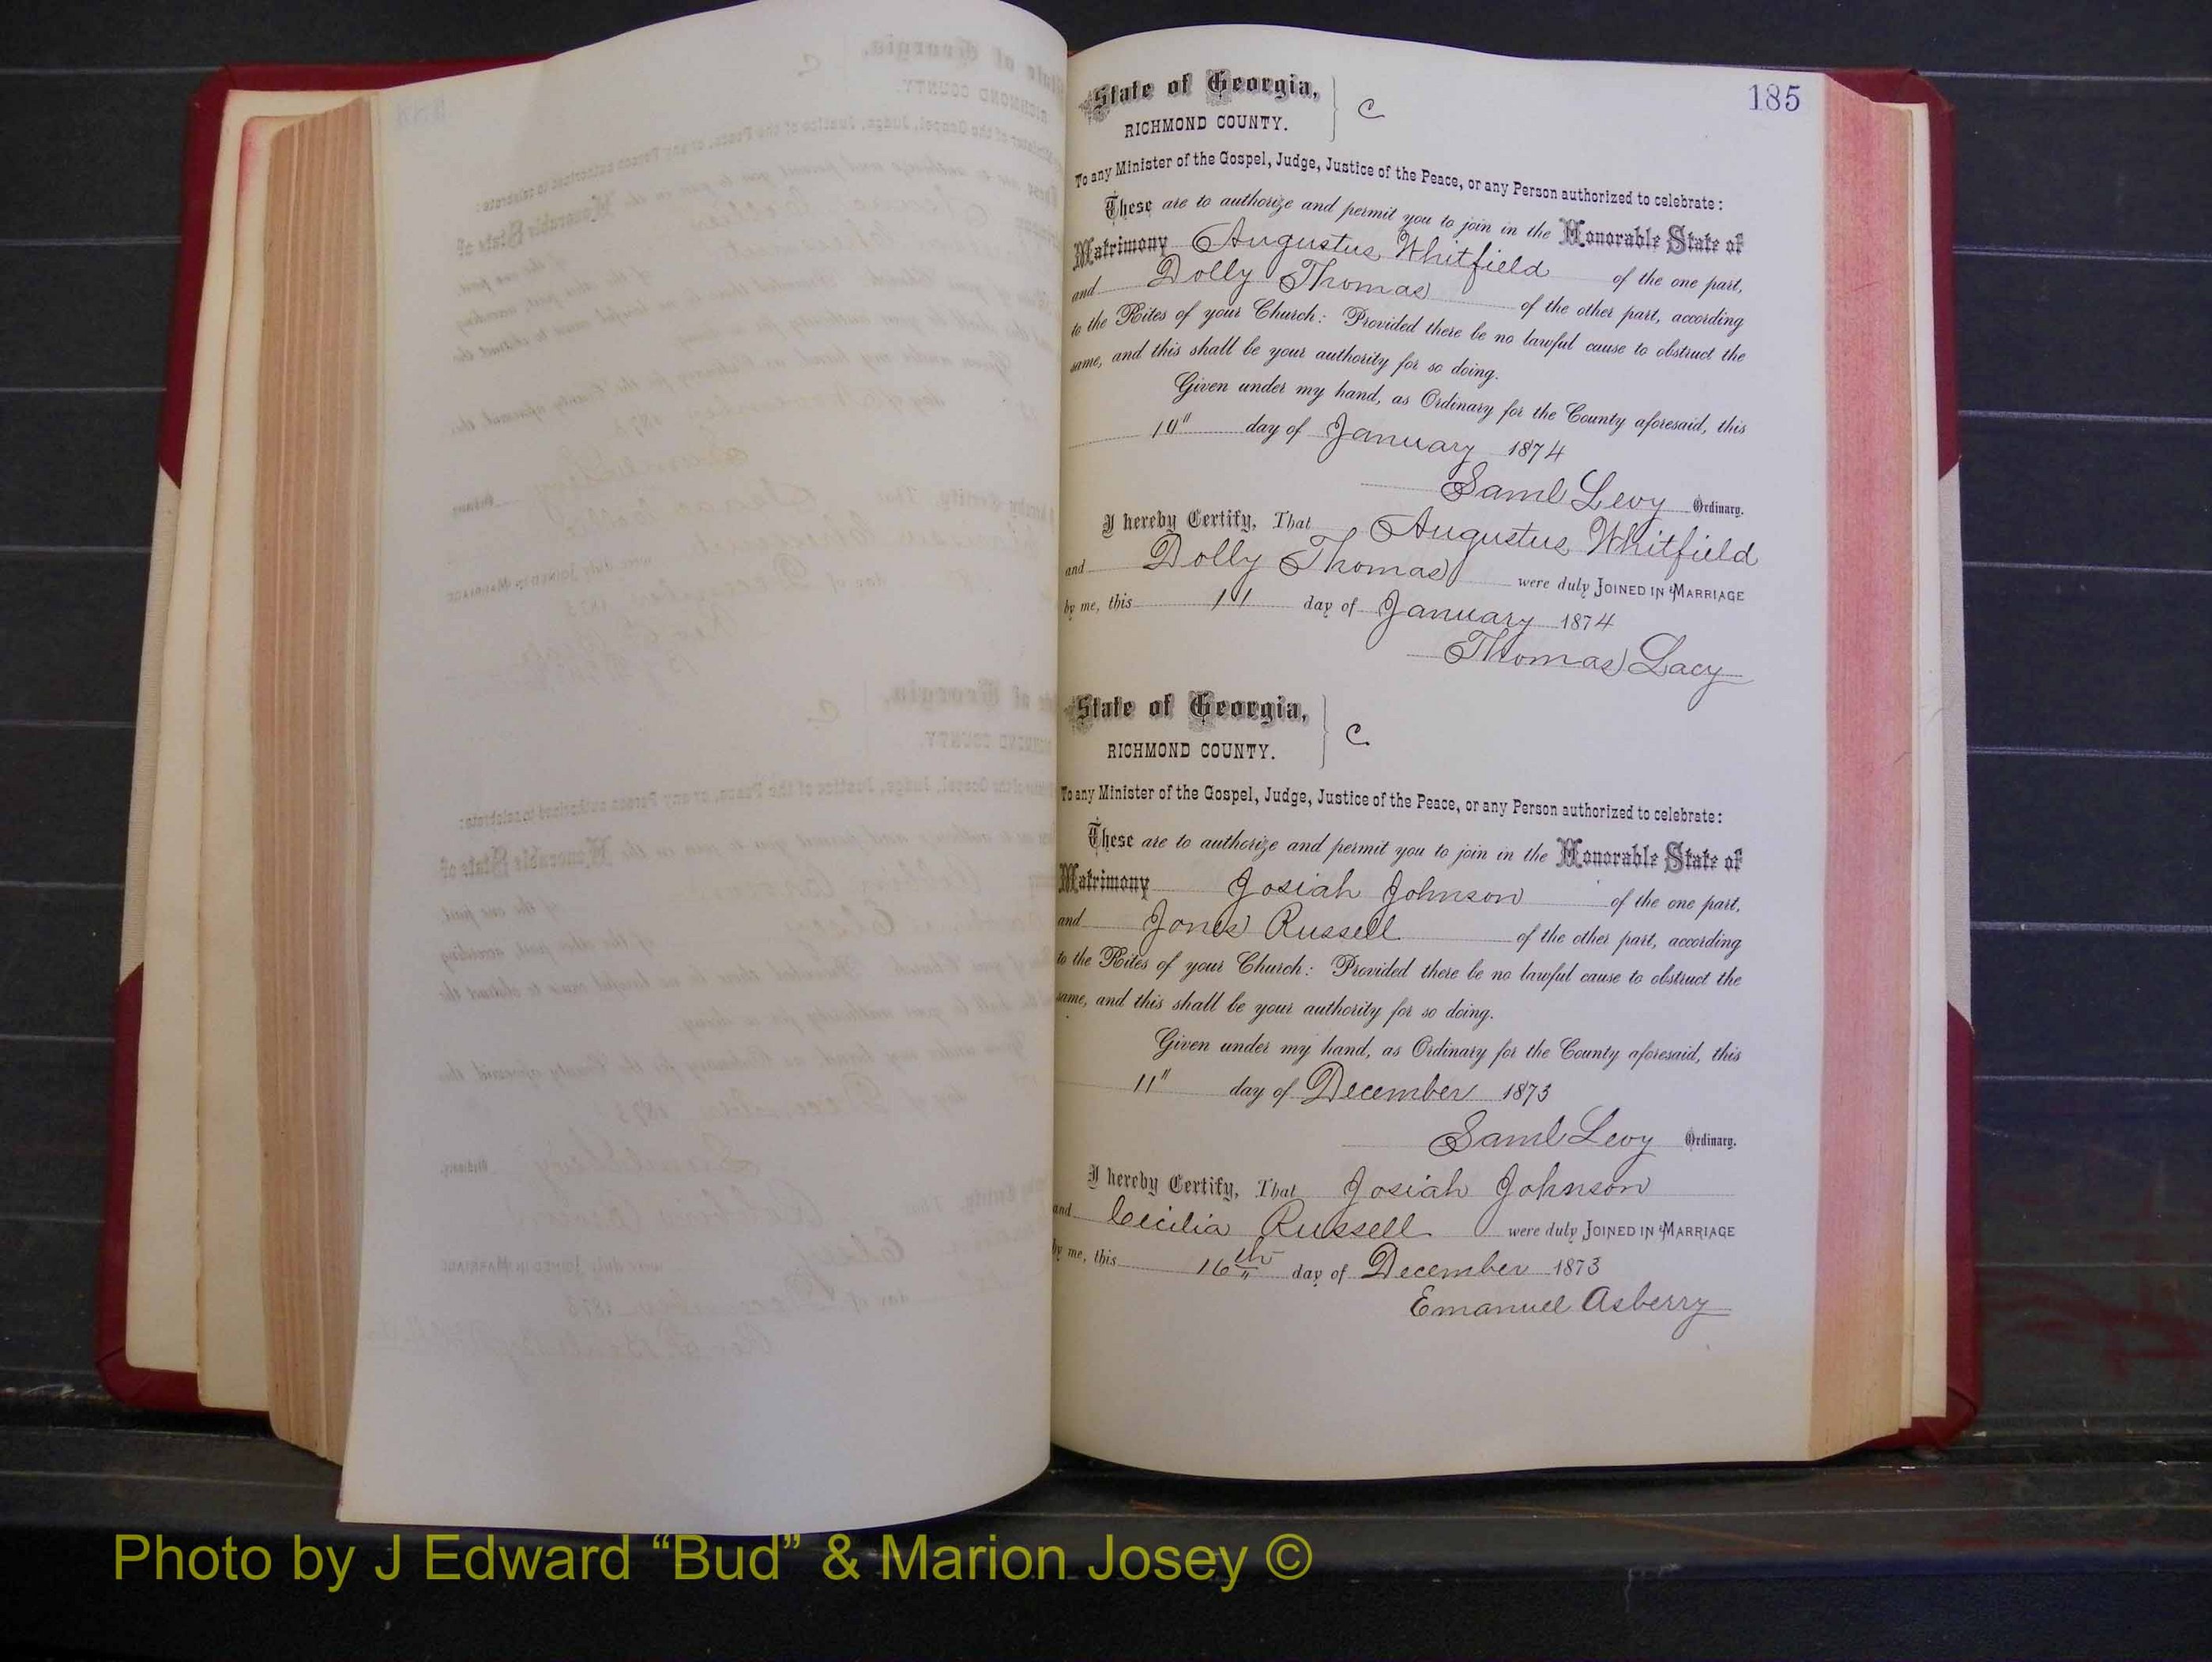 185
State of Georgia,
RICHMOND COUNTY.
C
To any Minister of the Gospel, Judge, Justice of the Peace, or any Person authorized to celebrate:
These are to authorize and permit you to join in the Honorable State of
Matrimony Augustus Whitfield of the one part,
and Dolly Thomas of the other part, according
to the Rites of your Church: Provided there be no lawful cause to obstruct the
same, and this shall be your authority for so doing.
Given under my hand, as Ordinary for the County aforesaid, this
10" day of January 1874
Saml Levy Ordinary.
I hereby Certify, That Augustus Whitfield
and Dolly Thomas were duly JOINED IN MARRIAGE
by me, this 11 day of January 1874
Thomas Lacy
State of Georgia,
RICHMOND COUNTY.
C.
To any Minister of the Gospel, Judge, Justice of the Peace, or any Person authorized to celebrate:
These are to authorize and permit you to join in the Honorable State of
Matrimony Josiah Johnson of the one part,
and Jones Russell of the other part, according
to the Rites of your Church: Provided there be no lawful cause to obstruct the
same, and this shall be your authority for so doing.
Given under my hand, as Ordinary for the County aforesaid, this
11" day of December 1873
Saml Levy Ordinary.
I hereby Certify, That Josiah Johnson
and Cecilia Russell were duly JOINED IN MARRIAGE
by me, this 16th day of December 1873
Emanuel Asberry
Photo by J Edward “Bud” & Marion Josey ©